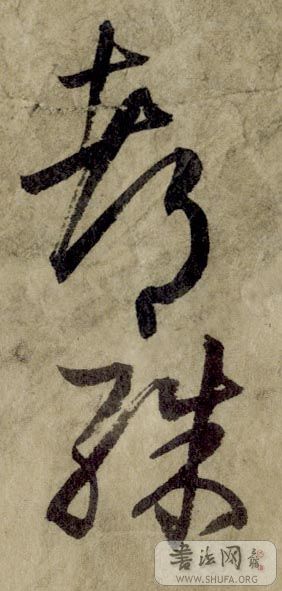 都
殊
書法网
WWW.SHUFA.ORG